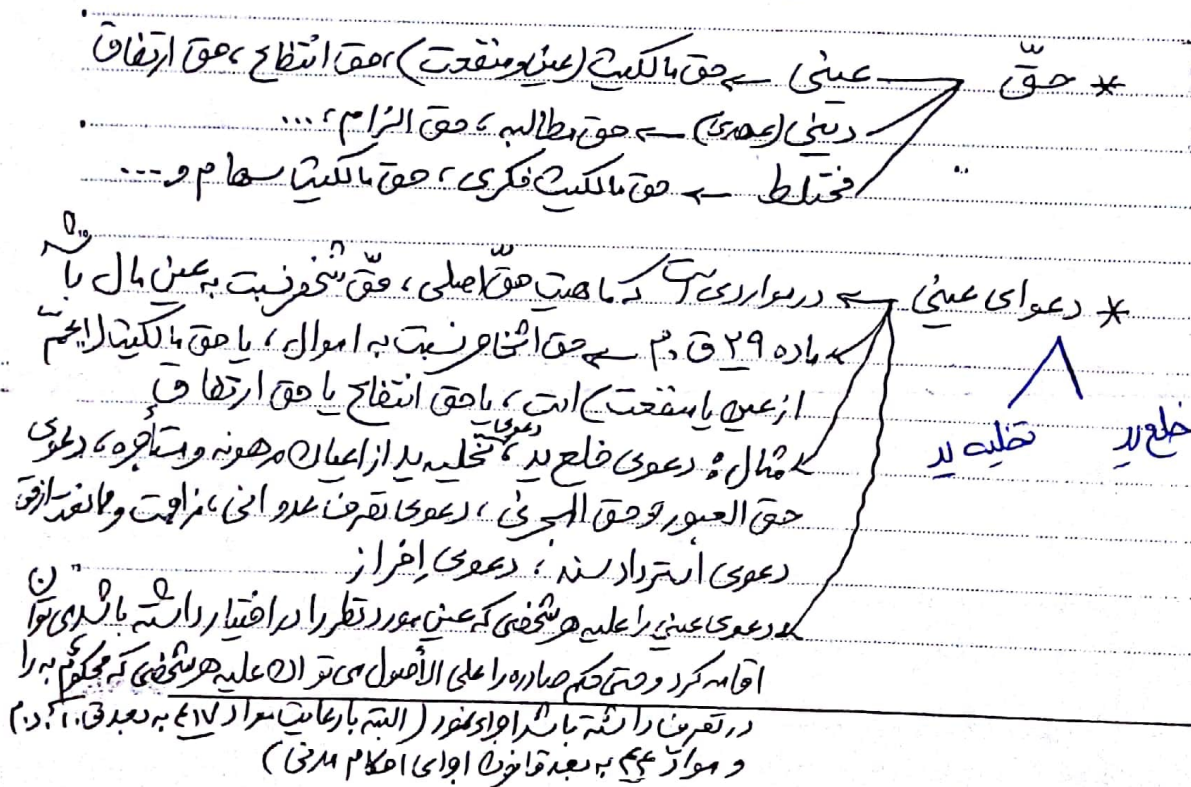 * حقّ عینی ← حق مالکیت (عین و منفعت)، حق انتفاع، حق ارتفاق
دینی (عهدی) ← حق مطالبه، حق الزام، ...
مختلط ← حق مالکیت فکری، حق مالکیت سهام و ...
* دعوای عینی ← در مواردی است که ماهیت حقّ اصلی، حقّ شخص نسبت به عین مال باشد
ماده ۲۹ ق.م ← حق اشخاص نسبت به اموال، یا حق مالکیت (اعمّ
از عین یا منفعت) است، یا حق انتفاع یا حق ارتفاق
خلع ید تخلیه ید
مثال: دعوی خلع ید، دعوی تخلیه ید از اعیان مرهونه و مستأجره، دعوی
حق العبور و حق المجری، دعوی تصرف عدوانی، مزاحمت و ممانعت از حق
دعوی استرداد سند، دعوی اِفراز
دعوی عینی را علیه هر شخصی که عین مورد نظر را در اختیار داشته باشد می توان
اقامه کرد و حتی حکم صادره را علی الأصول می توان علیه هر شخصی که محکومٌ به را
در تصرف داشته باشد اجراء نمود (البته با رعایت مواد ۴۱۷ به بعد ق.آ.د.م
و مواد ۴۴ به بعد قانون اجرای احکام مدنی)